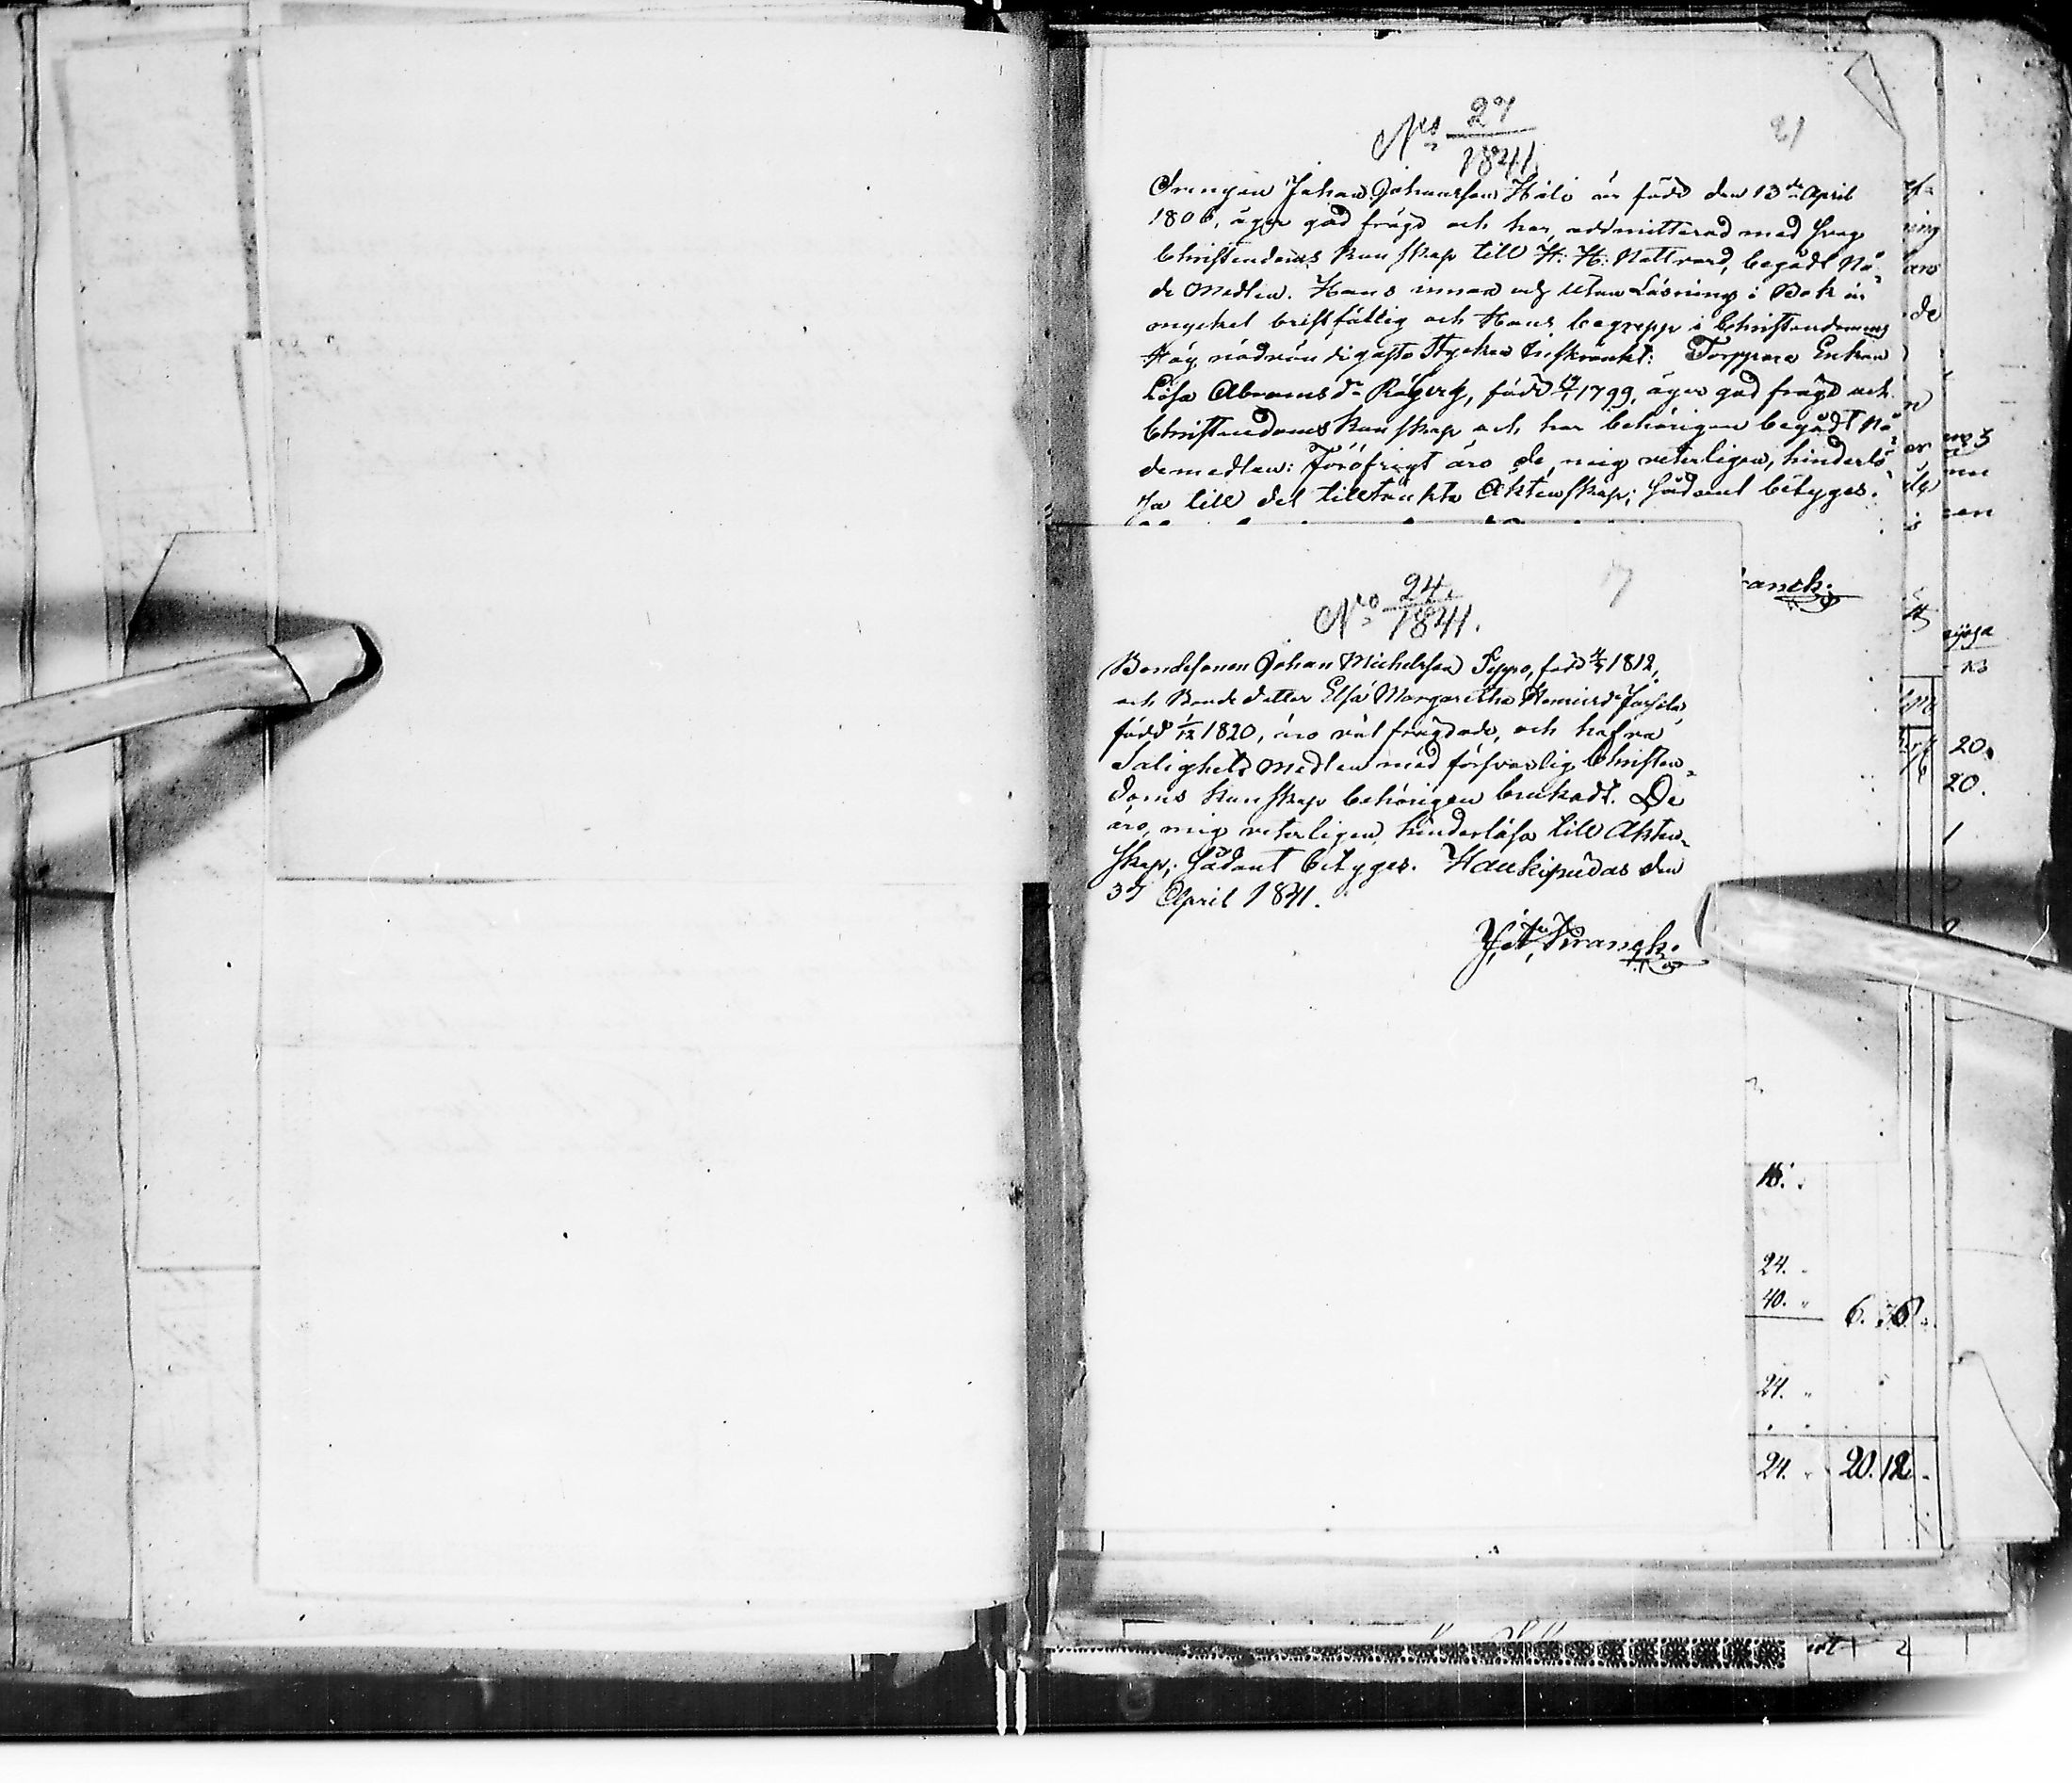 No 27
1841.
21
Drengen Johan Johansson Halo är född den 13de April
1806, äger god frägd och har, admitterad med svag
Christendoms kunskap till H: H: Nattvard, begådt Nå-
de Medlen. Hans innan och utan Läsning i Bok är
mycket bristfällig och Hans begrepp i Christendomens
nödvändigaste Stycken inskränkt: Torppare Enkan
Lisa Abramsdr, född 1799, äger god frägd och
Christendoms kunskap och har behörigen begådt Nå-
demedlen: Föröfrigt äro de, mig veterligen, hinderlö-
sa till det tilltänkta Äktenskap; sådant betyges.
anck.
17
No 24.
1841.
Bondesonen Johan Michelsson Seppo, född 1812,
och Bonde dotter Elsa Margaretha Henricsdr
född 1/12 1820, äro väl frägdade, och hafva
Salighets Medlen med försvarlig Christen-
doms kunskap behörigen brukadt. De
äro, mig veterligen, hinderlösa till Äkten-
skap; sådant betyges. Haukipudas den
April 1841.
Franck.
20.
20.
24.
40. 6.
24.
24. 20. 12